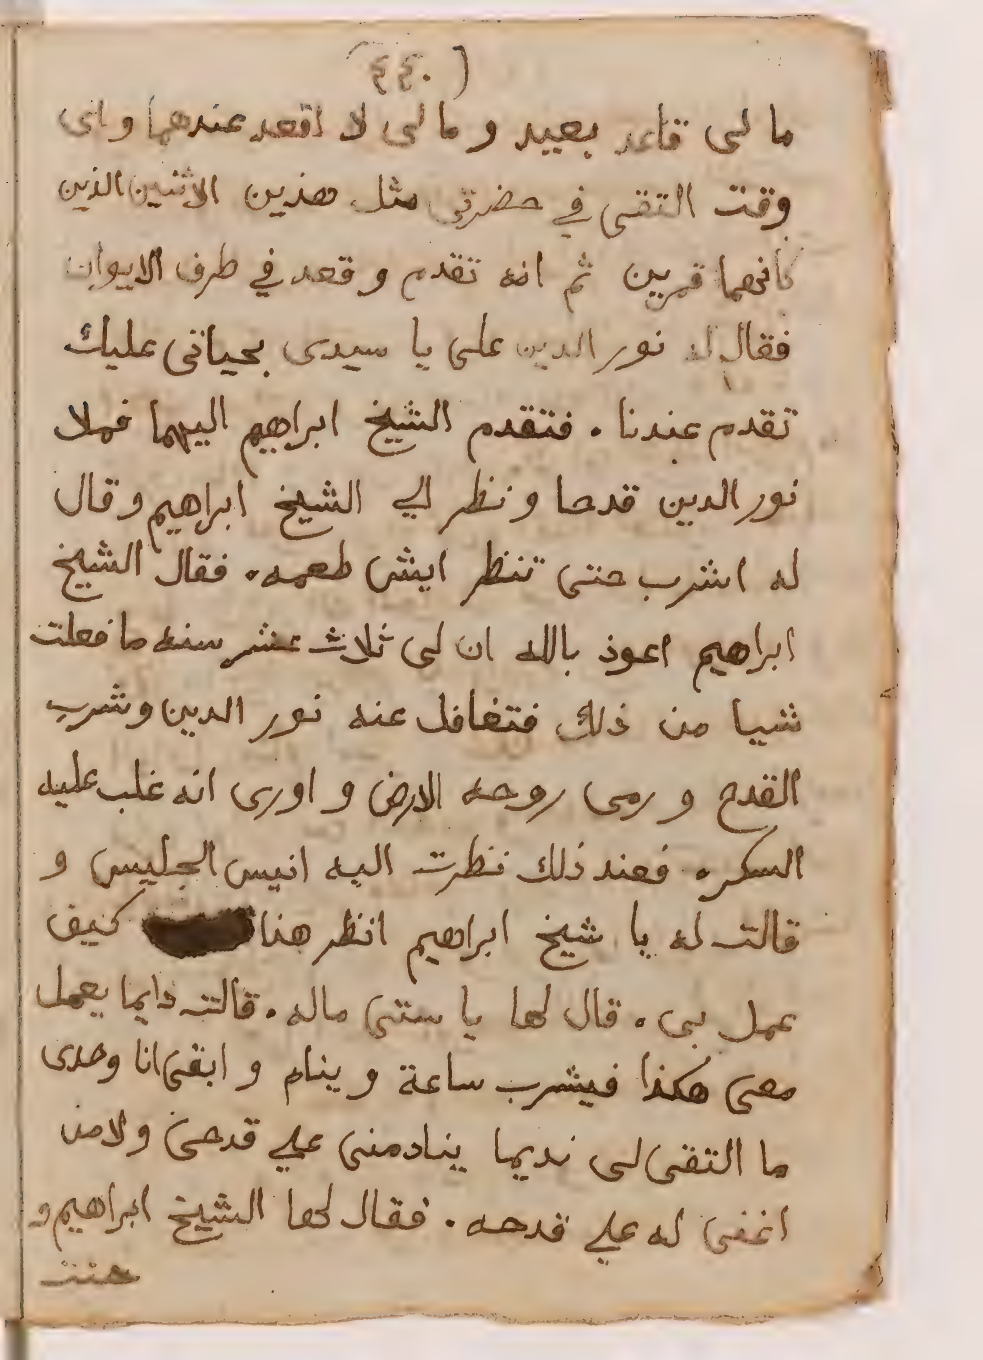 (٤٤٠)
ما لى قاعد بعيد و ما لى لا اقعد عندهما واى
وقت التقى في حضرتى مثل هذين الاثنين الذين
كانهما قمرين ثم انه تقدم و قعد في طرف الايوان
فقال له نور الدين على يا سيدى بحياتى عليك
تقدم عندنا . فتقدم الشيخ ابراهيم اليهما فملا
نور الدين قدحا و نظر الي الشيخ ابراهيم وقال
له اشرب حتى تنظر ايش طعمه . فقال الشيخ
ابراهيم اعوذ بالله ان لى ثلاث عشر سنه ما فعلت
شيا من ذلك فتغافل عنه نور الدين وشرب
القدح و رمى روحه الارض و اورى انه غلب عليه
السكر . فعند ذلك نظرت اليه انيس الجليس و
قالت له يا شيخ ابراهيم انظر هذا كيف
عمل بى . قال لها يا ستى ماله . قالت دايما يعمل
معى هكذا فيشرب ساعة و ينام و ابقى انا وحدى
ما التقى لى نديما ينادمنى علي قدحى ولا من
اغنى له علي قدحه . فقال لها الشيخ ابراهيم و
حنت